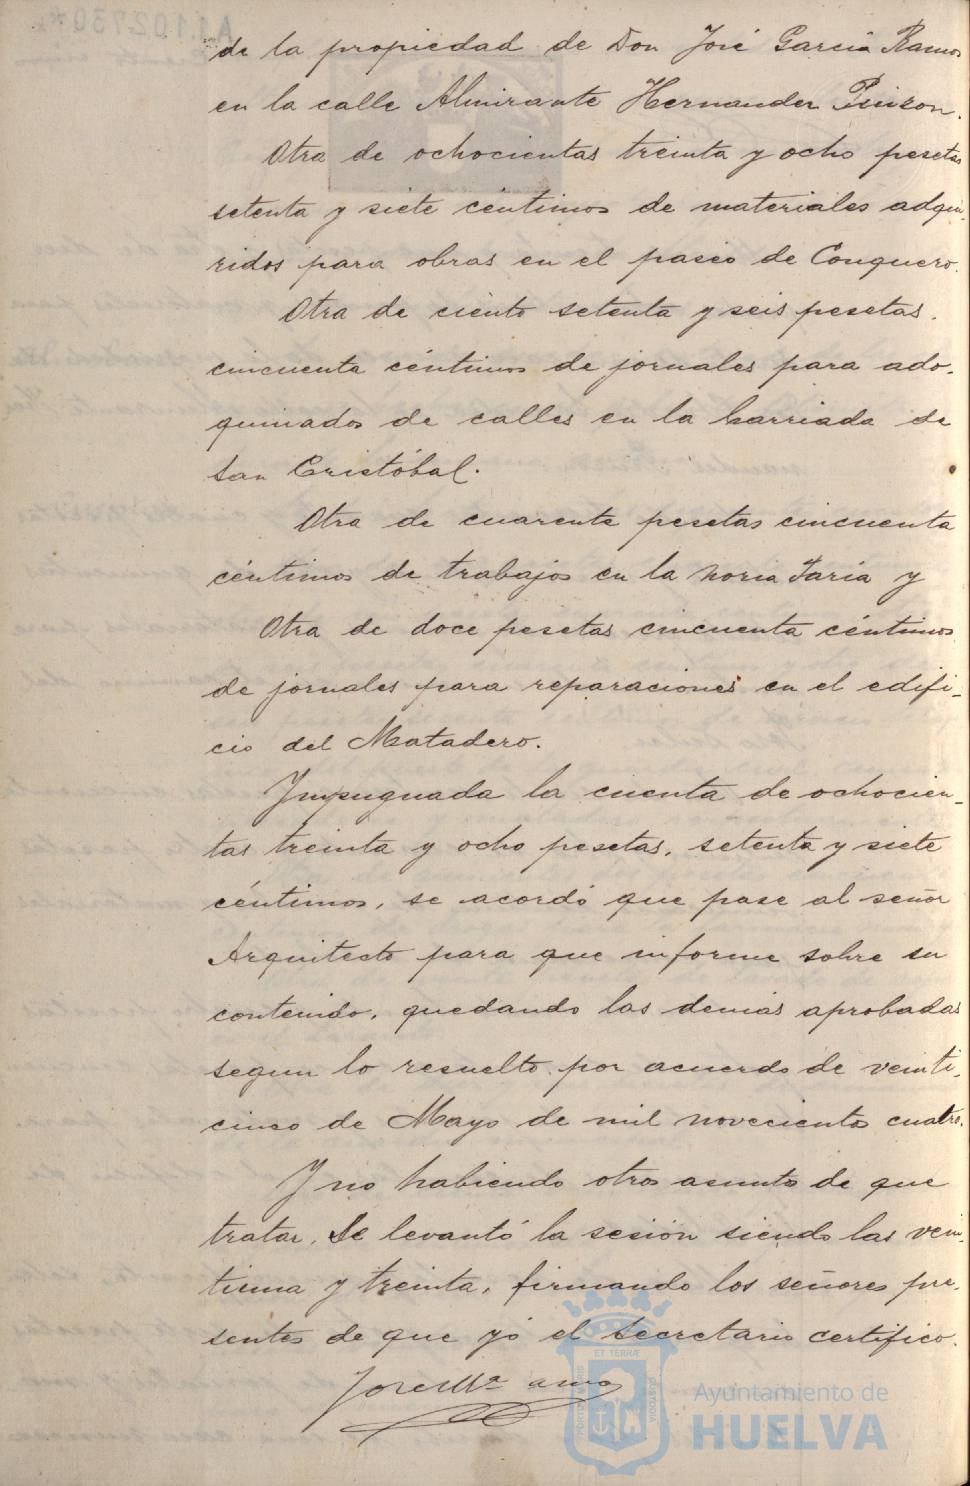 de la propiedad de Don José García Ramos
en la calle Almirante Hernandez Pinzon.
Otra de ochocientas treinta y ocho pesetas
setenta y siete céntimos de materiales adqui-
ridos para obras en el paseo de Conquero.
Otra de ciento setenta y seis pesetas.
cincuenta céntimos de jornales para ado-
quinados de calles en la barriada de
San Cristóbal.
Otra de cuarenta pesetas cincuenta
céntimos de trabajos en la noria Faria y
Otra de doce pesetas cincuenta céntimos
de jornales para reparaciones en el edifi-
cio del Matadero.
Impugnada la cuenta de ochocien-
tas treinta y ocho pesetas, setenta y siete
céntimos, se acordó que pase al señor
Arquitecto para que informe sobre su
contenido, quedando las demás aprobadas
segun lo resuelto por acuerdo de veinti-
cinco de Mayo de mil novecientos cuatro.
Y no habiendo otros asuntos de que
tratar, Se levantó la sesión siendo las vein-
tiuna y treinta, firmando los señores pre-
sentes de que yó el Secretario certifico.
José Mª
ET TERRÆ
PORTUS MARIS
CUSTODIA
Ayuntamiento de
HUELVA